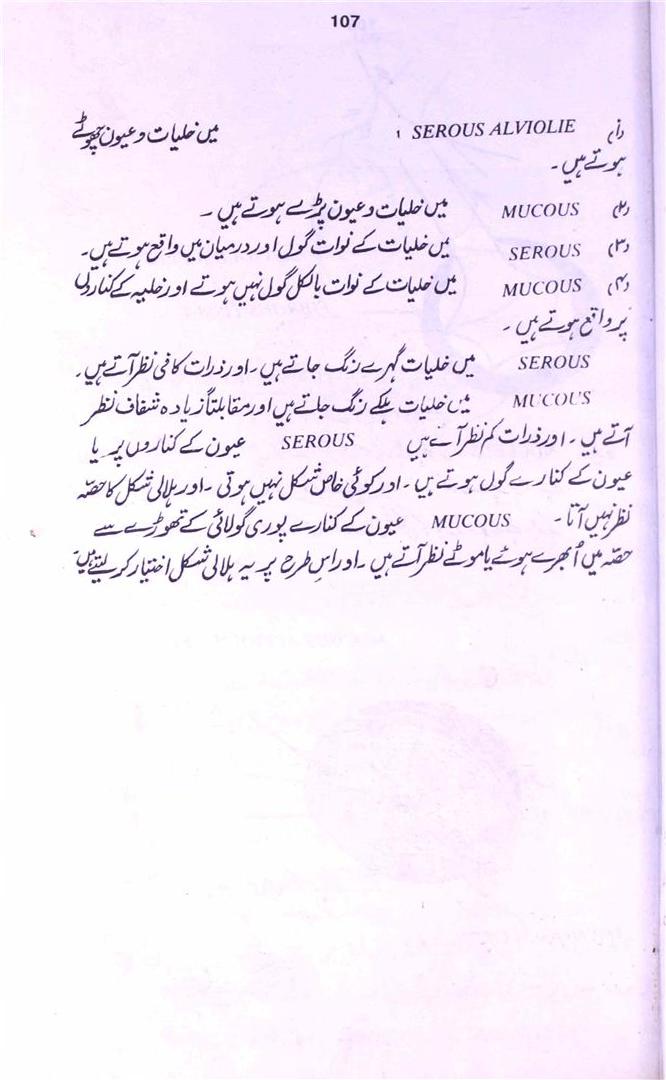 107
(۱) SEROUS ALVIOLIE ، میں خلیات و عیون چھوٹے
ہوتے ہیں۔
(۲) MUCOUS میں خلیات و عیون بڑے ہوتے ہیں۔
(۳) SEROUS میں خلیات کے نوات گول اور درمیان میں واقع ہوتے ہیں۔
(۴) MUCOUS میں خلیات کے نوات بالکل گول نہیں ہوتے اور خلیہ کے کناروں
پر واقع ہوتے ہیں۔
SEROUS میں خلیات گہرے رنگ جاتے ہیں۔ اور ذرات کافی نظر آتے ہیں۔
MUCOUS میں خلیات ہلکے رنگ جاتے ہیں اور مقابلتاً زیادہ شفاف نظر
آتے ہیں۔ اور ذرات کم نظر آتے ہیں SEROUS عیون کے کناروں پر یا
عیون کے کنارے گول ہوتے ہیں۔ اور کوئی خاص شکل نہیں ہوتی۔ اور ہلالی شکل کا حصّہ
نظر نہیں آتا۔ MUCOUS عیون کے کنارے پوری گولائی کے تھوڑے سے
حصّہ میں اُبھرے ہوئے یا موٹے نظر آتے ہیں۔ اور اس طرح پر یہ ہلالی شکل اختیار کر لیتے ہیں۔